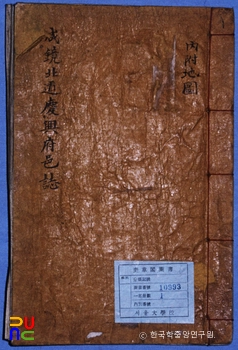 內附地圖
咸鏡北道慶興府邑誌
奎章閣圖書
10993
1
서울大學校
PUNC
© 한국학중앙연구원